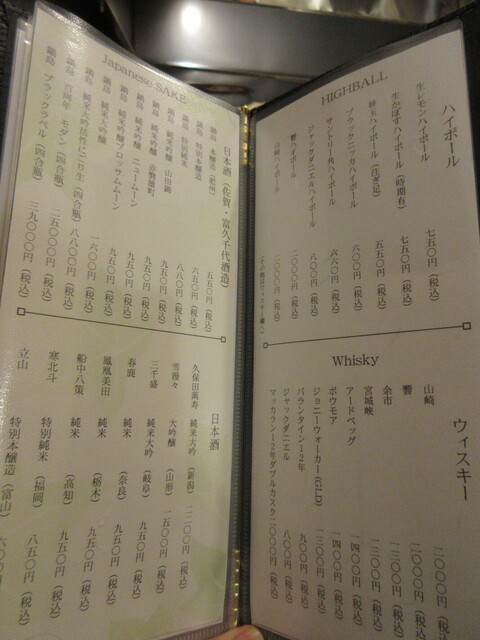 HIGHBALL
ハイボール
生レモンハイボール 七五〇円(税込)
生かぼすハイボール(時期有) 七五〇円(税込)
特玉ハイボール(注ぎ足) 五五〇円(税込)
ブラックニッカハイボール 六〇〇円(税込)
サントリー角ハイボール 六六〇円(税込)
ジャックダニエルハイボール 八〇〇円(税込)
響ハイボール 二〇〇〇円(税込)
山崎ハイボール 二〇〇〇円(税込)
Whisky
ウィスキー
山崎 二〇〇〇円(税込)
響 二〇〇〇円(税込)
余市 一二〇〇円(税込)
宮城峡 一二〇〇円(税込)
アードベッグ 一四〇〇円(税込)
ボウモア 一四〇〇円(税込)
ジョニーウォーカー(GLD) 一三〇〇円(税込)
バランタイン12年 九〇〇円(税込)
ジャックダニエル 八〇〇円(税込)
マッカラン12年ダブルカスク 二〇〇〇円(税込)
Japanese SAKE
日本酒(佐賀・富久千代酒造)
鍋島 本醸造 五五〇円(税込)
鍋島 特別本醸造 六五〇円(税込)
鍋島 特別純米 八八〇円(税込)
鍋島 純米吟醸 山田錦 九五〇円(税込)
鍋島 純米吟醸 赤磐雄町 九五〇円(税込)
鍋島 純米吟醸 ニュームーン 九五〇円(税込)
鍋島 純米吟醸ブロッサムムーン 九五〇円(税込)
鍋島 純米大吟醸 一六〇〇円(税込)
鍋島 純米大吟活性にごり生(四合瓶) 八八〇〇円(税込)
鍋島 百周年 モダン(四合瓶) 二五〇〇〇円(税込)
鍋島 ブラックラベル(四合瓶) 三九〇〇〇円(税込)
日本酒
久保田萬寿 純米大吟(新潟) 二二〇〇円(税込)
雪漫々 大吟醸(山形) 一五〇〇円(税込)
三千盛 純米大吟(岐阜) 九五〇円(税込)
春鹿 純米(奈良) 九五〇円(税込)
鳳凰美田 純米(栃木) 九五〇円(税込)
船中八策 純米(高知) 九五〇円(税込)
寒北斗 特別純米(福岡) 八五〇円(税込)
立山 特別本醸造(富山)